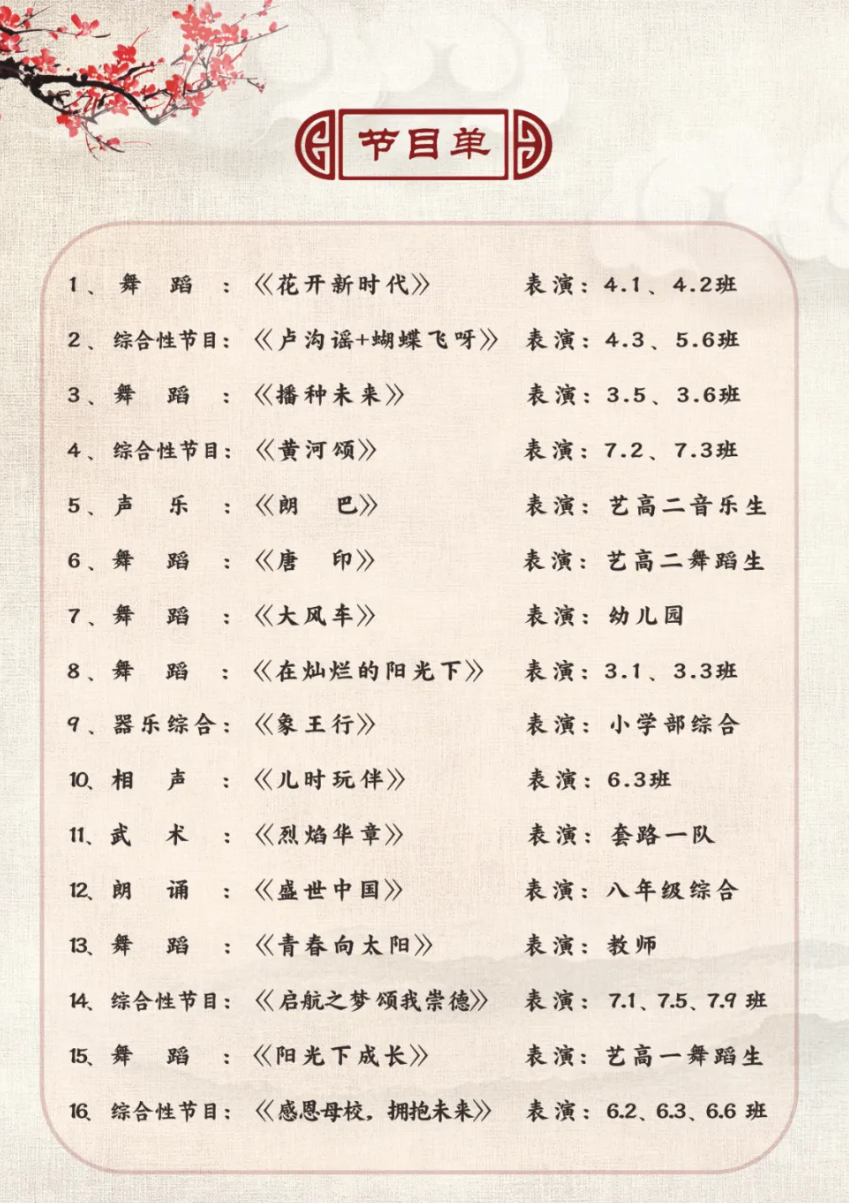 节目单
1、舞 蹈 :《花开新时代》 表演:4.1、4.2班
2、综合性节目:《卢沟谣+蝴蝶飞呀》 表演:4.3、5.6班
3、舞 蹈 :《播种未来》 表演:3.5、3.6班
4、综合性节目:《黄河颂》 表演:7.2、7.3班
5、声 乐 :《朗 巴》 表演:艺高二音乐生
6、舞 蹈 :《唐 印》 表演:艺高二舞蹈生
7、舞 蹈 :《大风车》 表演:幼儿园
8、舞 蹈 :《在灿烂的阳光下》 表演:3.1、3.3班
9、器乐综合:《象王行》 表演:小学部综合
10、相 声 :《儿时玩伴》 表演:6.3班
11、武 术 :《烈焰华章》 表演:套路一队
12、朗 诵 :《盛世中国》 表演:八年级综合
13、舞 蹈 :《青春向太阳》 表演:教师
14、综合性节目:《启航之梦颂我崇德》 表演:7.1、7.5、7.9 班
15、舞 蹈 :《阳光下成长》 表演:艺高一舞蹈生
16、综合性节目:《感恩母校,拥抱未来》 表演:6.2、6.3、6.6 班